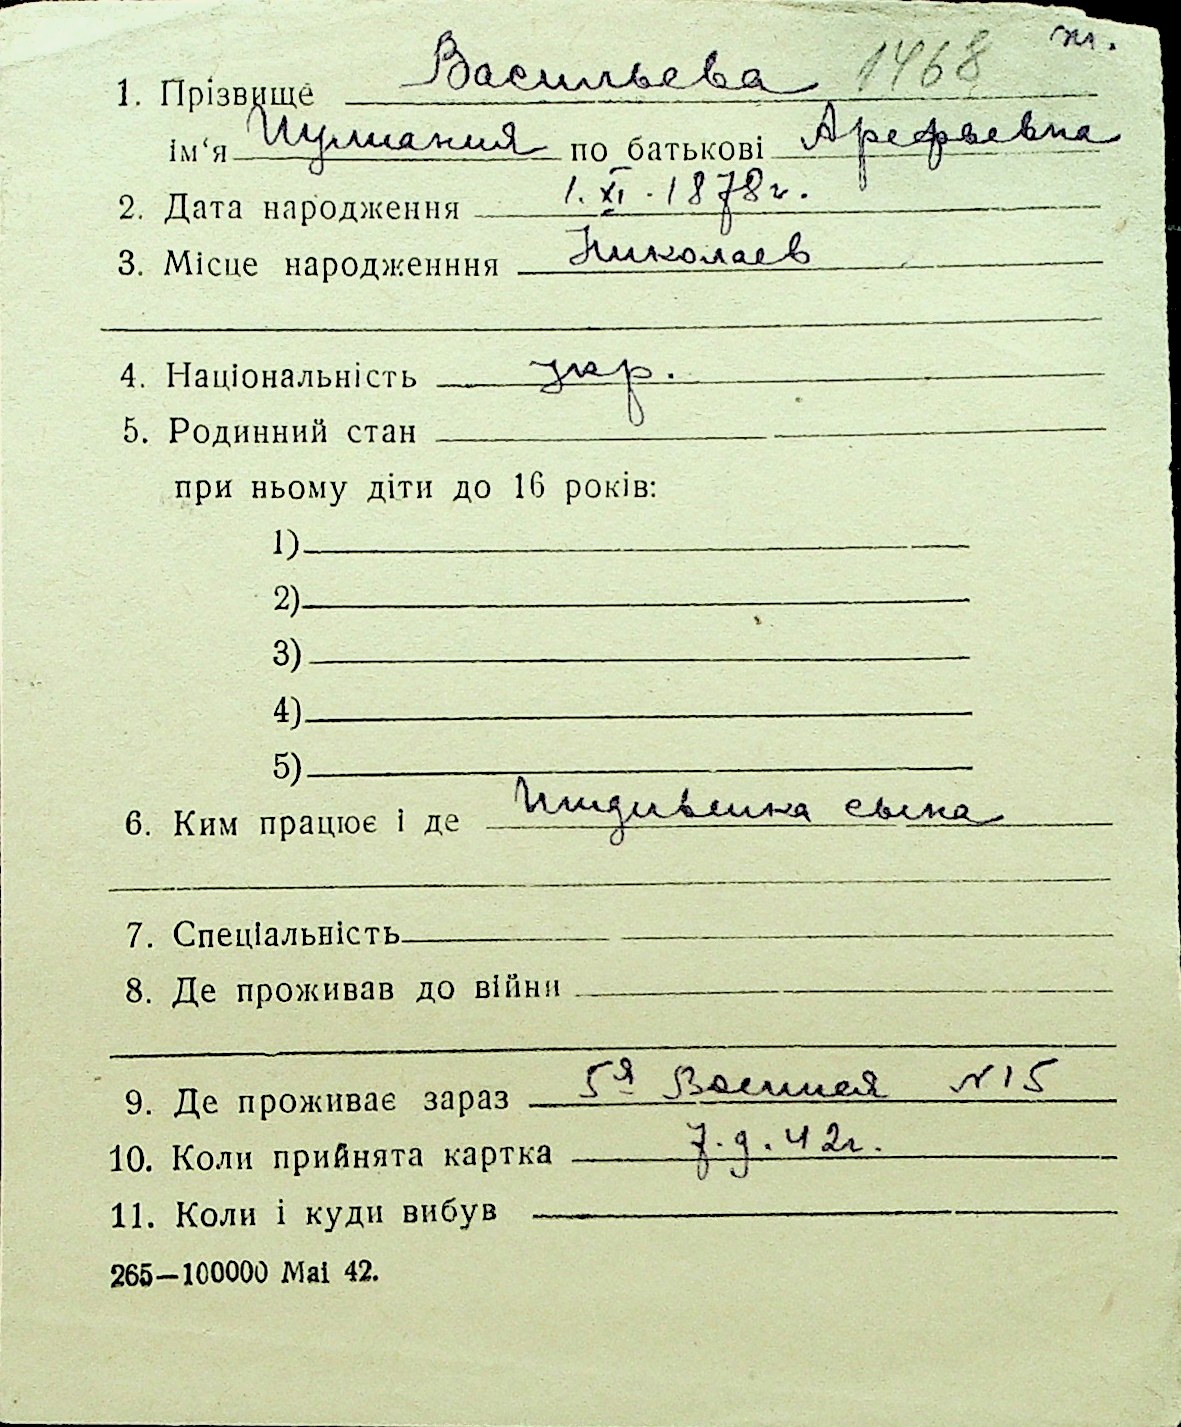 ж.
1. Прізвище Васильева 1468
ім‘я Иулиания по батькові Арефьевна
2. Дата народження 1.XI.1878г.
3. Місце народженння Николаев
4. Національність укр.
5. Родинний стан
при ньому діти до 16 років:
1)
2)
3)
4)
5)
6. Ким працює і де Иждивенка сына
7. Спеціальність
8. Де проживав до війни
9. Де проживає зараз 5я Военная N 15
10. Коли прийнята картка 7.9.42г.
11. Коли і куди вибув
265—100000 Mai 42.